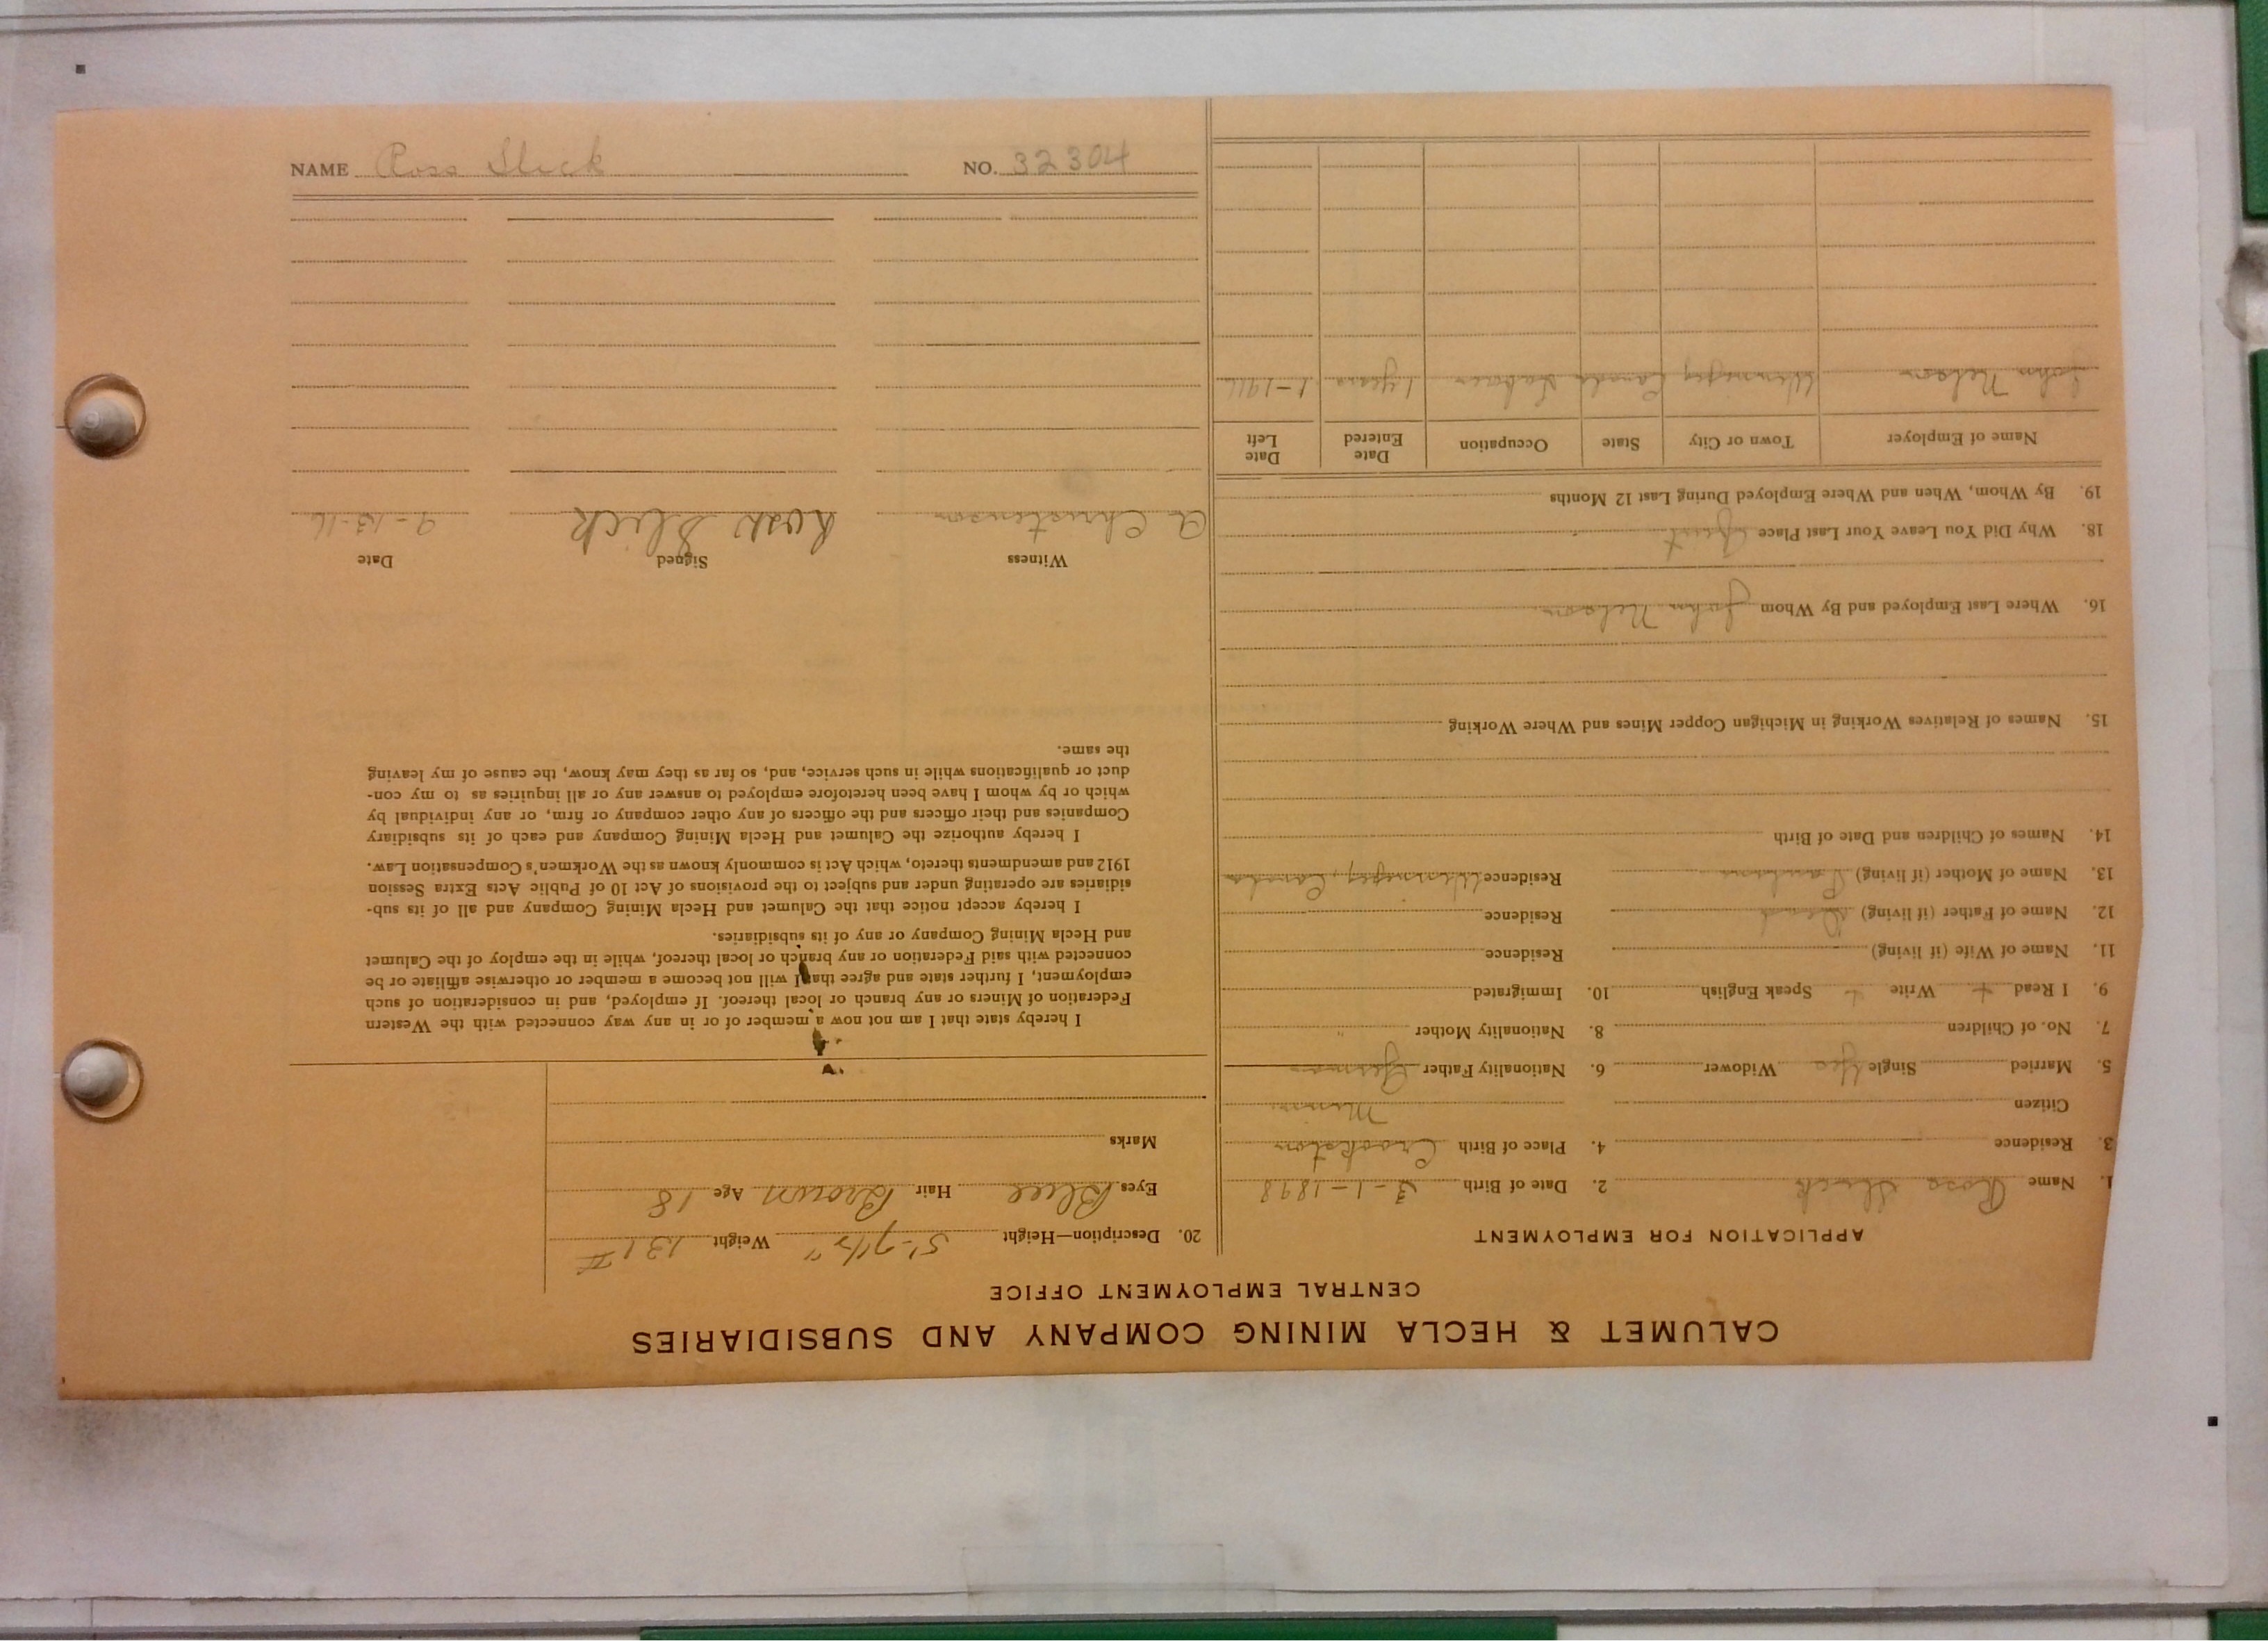 NAME Ross Slick NO. 32304
CALUMET & HECLA MINING COMPANY AND SUBSIDIARIES
CENTRAL EMPLOYMENT OFFICE
APPLICATION FOR EMPLOYMENT
1. Name Ross Slick 2. Date of Birth 3-1-1898
3. Residence 4. Place of Birth Crookston
Citizen Minn.
5. Married Single Yes Widower 6. Nationality Father German
7. No. of Children 8. Nationality Mother "
9. I Read + Write + Speak English 10. Immigrated
11. Name of Wife (if living) Residence
12. Name of Father (if living) Dead Residence
13. Name of Mother (if living) Residence Winnipeg, Canada
14. Names of Children and Date of Birth
15. Names of Relatives Working in Michigan Copper Mines and Where Working
16. Where Last Employed and By Whom John Nelson
18. Why Did You Leave Your Last Place Quit
19. By Whom, When and Where Employed During Last 12 Months
Name of Employer Town or City State Occupation Date Entered Date Left
John Nelson Winnipeg Canada Laborer 1 years 1-1916
20. Description—Height 5'-7 1/2" Weight 131 #
Eyes Blue Hair Brown Age 18
Marks
I hereby state that I am not now a member of or in any way connected with the Western
Federation of Miners or any branch or local thereof. If employed, and in consideration of such
employment, I further state and agree that I will not become a member or otherwise affiliate or be
connected with said Federation or any branch or local thereof, while in the employ of the Calumet
and Hecla Mining Company or any of its subsidiaries.
I hereby accept notice that the Calumet and Hecla Mining Company and all of its sub-
sidiaries are operating under and subject to the provisions of Act 10 of Public Acts Extra Session
1912 and amendments thereto, which Act is commonly known as the Workmen's Compensation Law.
I hereby authorize the Calumet and Hecla Mining Company and each of its subsidiary
Companies and their officers and the officers of any other company or firm, or any individual by
which or by whom I have been heretofore employed to answer any or all inquiries as to my con-
duct or qualifications while in such service, and, so far as they may know, the cause of my leaving
the same.
Witness Signed Date
A Christenson Ross Slick 9-13-16